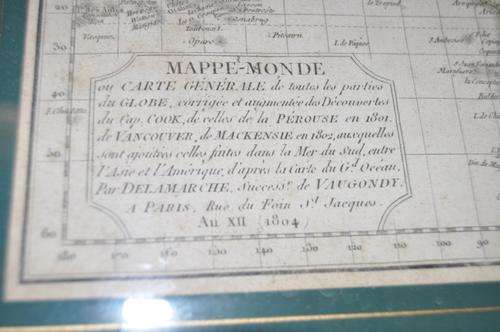 MAPPE-MONDE
ou CARTE GÉNÉRALE de toutes les parties
du GLOBE, corrigée et augmentée des Découvertes
du Cap. COOK, de celles de la PÉROUSE en 1801.
de VANCOUVER, de MACKENSIE en 1802, auxquelles
sont ajoutées celles faites dans la Mer du Sud, entre
l'Asie et l'Amérique, d'après la Carte du Gd. Océan,
Par DELAMARCHE, Successr. de VAUGONDY.
A PARIS, Rue du Foin St. Jacques.
An XII (1804)
Pitcairn
I. de Pâques
30
40
50
60
180
170
160
150
140
130
120
110
100
90